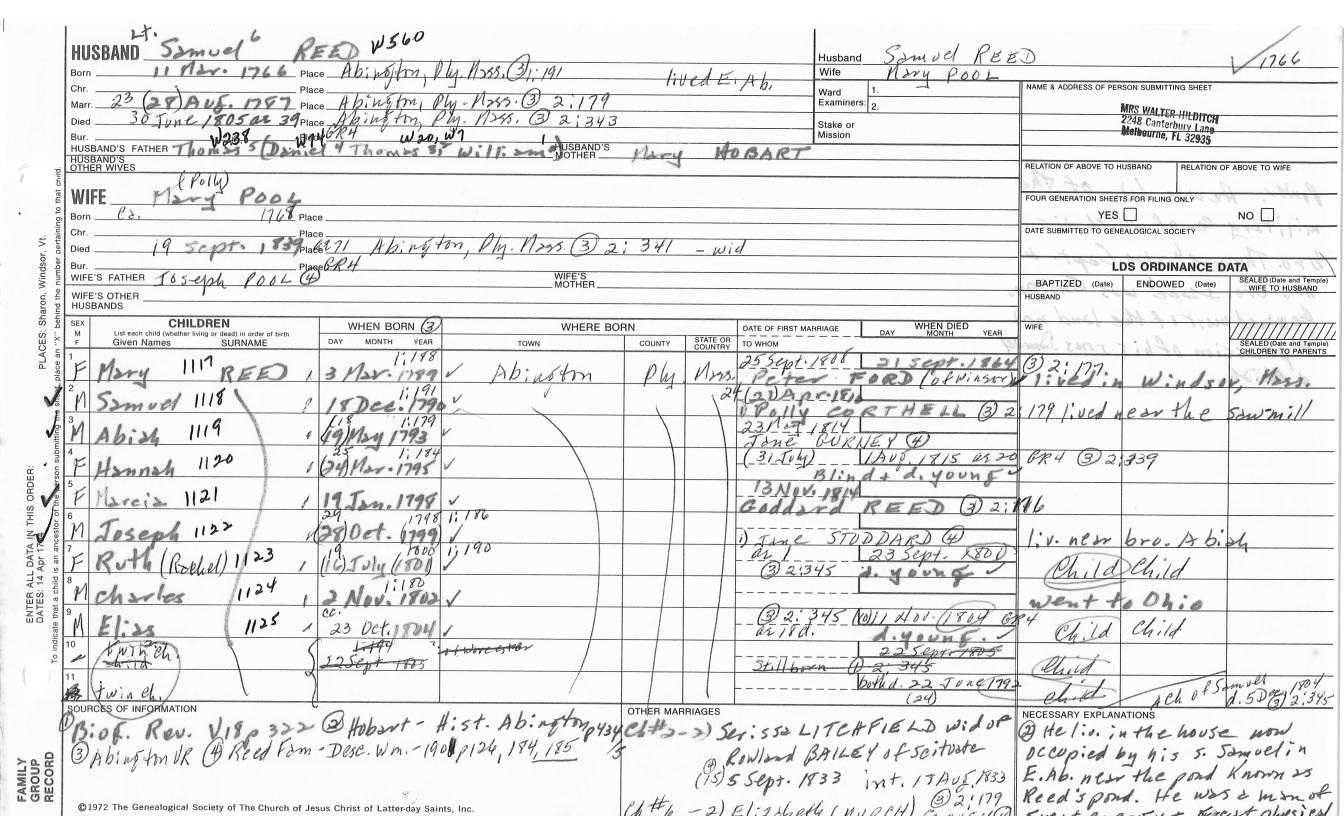 Lt.
HUSBAND Samuel 6 REED W560
Born 11 Mar. 1766 Place Abington, Ply. Mass. ③1:191 lived E. Ab.
Chr. Place
Marr. 23 (28) Aug. 1787 Place Abington, Ply-Mass. ③ 2:179
Died 30 June 1805 ae 39 Place Abington, Ply. Mass. ③ 2:343
Bur. W238 W74 GR4 W20, W7
HUSBAND'S FATHER Thomas 5 (Daniel 4 Thomas 3, William 1) HUSBAND'S MOTHER Mary HOBART
HUSBAND'S OTHER WIVES
Husband Samuel REED
Wife Mary POOL
Ward Examiners: 1.
2.
Stake or Mission
✓ 1766
NAME & ADDRESS OF PERSON SUBMITTING SHEET
MRS WALTER HILDITCH
2248 Canterbury Lane
Melbourne, FL 32935
RELATION OF ABOVE TO HUSBAND RELATION OF ABOVE TO WIFE
FOUR GENERATION SHEETS FOR FILING ONLY
YES NO
DATE SUBMITTED TO GENEALOGICAL SOCIETY
(Polly)
WIFE Mary POOL
Born Ca. 1768 Place
Chr. Place
Died 19 Sept. 1839 Place ae 71 Abington, Ply. Mass. ③ 2:341 - wid
Bur. Place GR4
WIFE'S FATHER Joseph POOL ④ WIFE'S MOTHER
WIFE'S OTHER HUSBANDS
LDS ORDINANCE DATA
BAPTIZED (Date) ENDOWED (Date) SEALED (Date and Temple) WIFE TO HUSBAND
HUSBAND
WIFE
SEALED (Date and Temple) CHILDREN TO PARENTS
SEX M F CHILDREN
List each child (whether living or dead) in order of birth
Given Names SURNAME
WHEN BORN ③
DAY MONTH YEAR
WHERE BORN
TOWN COUNTY STATE OR COUNTRY
DATE OF FIRST MARRIAGE
TO WHOM
WHEN DIED
DAY MONTH YEAR
1 F Mary 1117 REED 3 Mar. 1789 1:188 ✓ Abington Ply Mass. 25 Sept. 1808 21 Sept. 1864 ③ 2:177
Peter FORD (of Windsor) lived in Windsor, Mass.
2 M Samuel 1118 18 Dec. 1790 1:191 24 (21) Apr. 1816
1) Polly CORTHELL ③ 2:179 lived near the saw-mill
3 M Abiah 1119 18 (19) May 1793 1:179 23 1814
Jane GURNEY ④
4 F Hannah 1120 25 (24) Mar. 1795 1:184 ✓ (31 July) 1 Aug 1815 ae 20 GR4 ③ 2:339
Blind & d. young ✓
5 F Marcia 1121 19 Jan. 1798 ✓ 13 Nov. 1814
Goddard REED ③ 2:176
6 M Joseph 1122 29 (28) Oct. 1799 1798 1:186 ✓
1) Jane STODDARD ④ liv. near bro. Abiah
7 F Ruth (Rachel) 1123 19 (16) July 1801 1800 1:190 ae 1 23 Sept. 1801
③ 2:345 d. young ✓ Child Child
8 M Charles 1124 2 Nov. 1802 1:180 ✓ went to Ohio
9 M Elias 1125 cc. 23 Oct. 1804 ✓ ③ 2:345 11 Nov. 1804 GR4
ae 18d. d. young. ✓ Child Child
10 twin ch. child 22 Sept 1805 22 Sept 1805
Stillborn ① 2:345 Child
11 twin ch. both d. 22 June 1792 Child
(24) A ch of Samuel d. 5 Dec 1804 ③ 2:345
SOURCES OF INFORMATION
① Biog. Rev. V18 p322 ② Hobart - Hist. Abington p434
③ Abington VR ④ Reed Fam - Desc. Wm. - 1901 p126, 184, 185
OTHER MARRIAGES
Ch#2-2) Serissa LITCHFIELD wid of
Rowland BAILEY of Scituate
④ (15) 5 Sept. 1833 int. 17 Aug. 1833
③ 2:179
Ch #6 - 2) Elizabeth (BURCH)
NECESSARY EXPLANATIONS
② He liv. in the house now
occupied by his s. Samuel in
E. Ab. near the pond known as
Reed's pond. He was a man of
great physical
©1972 The Genealogical Society of The Church of Jesus Christ of Latter-day Saints, Inc.
FAMILY GROUP RECORD
ENTER ALL DATA IN THIS ORDER:
DATES: 14 Apr PLACES: Sharon, Windsor, Vt.
To indicate that a child is an ancestor of the person submitting the sheet, place an "X" behind the number pertaining to that child.